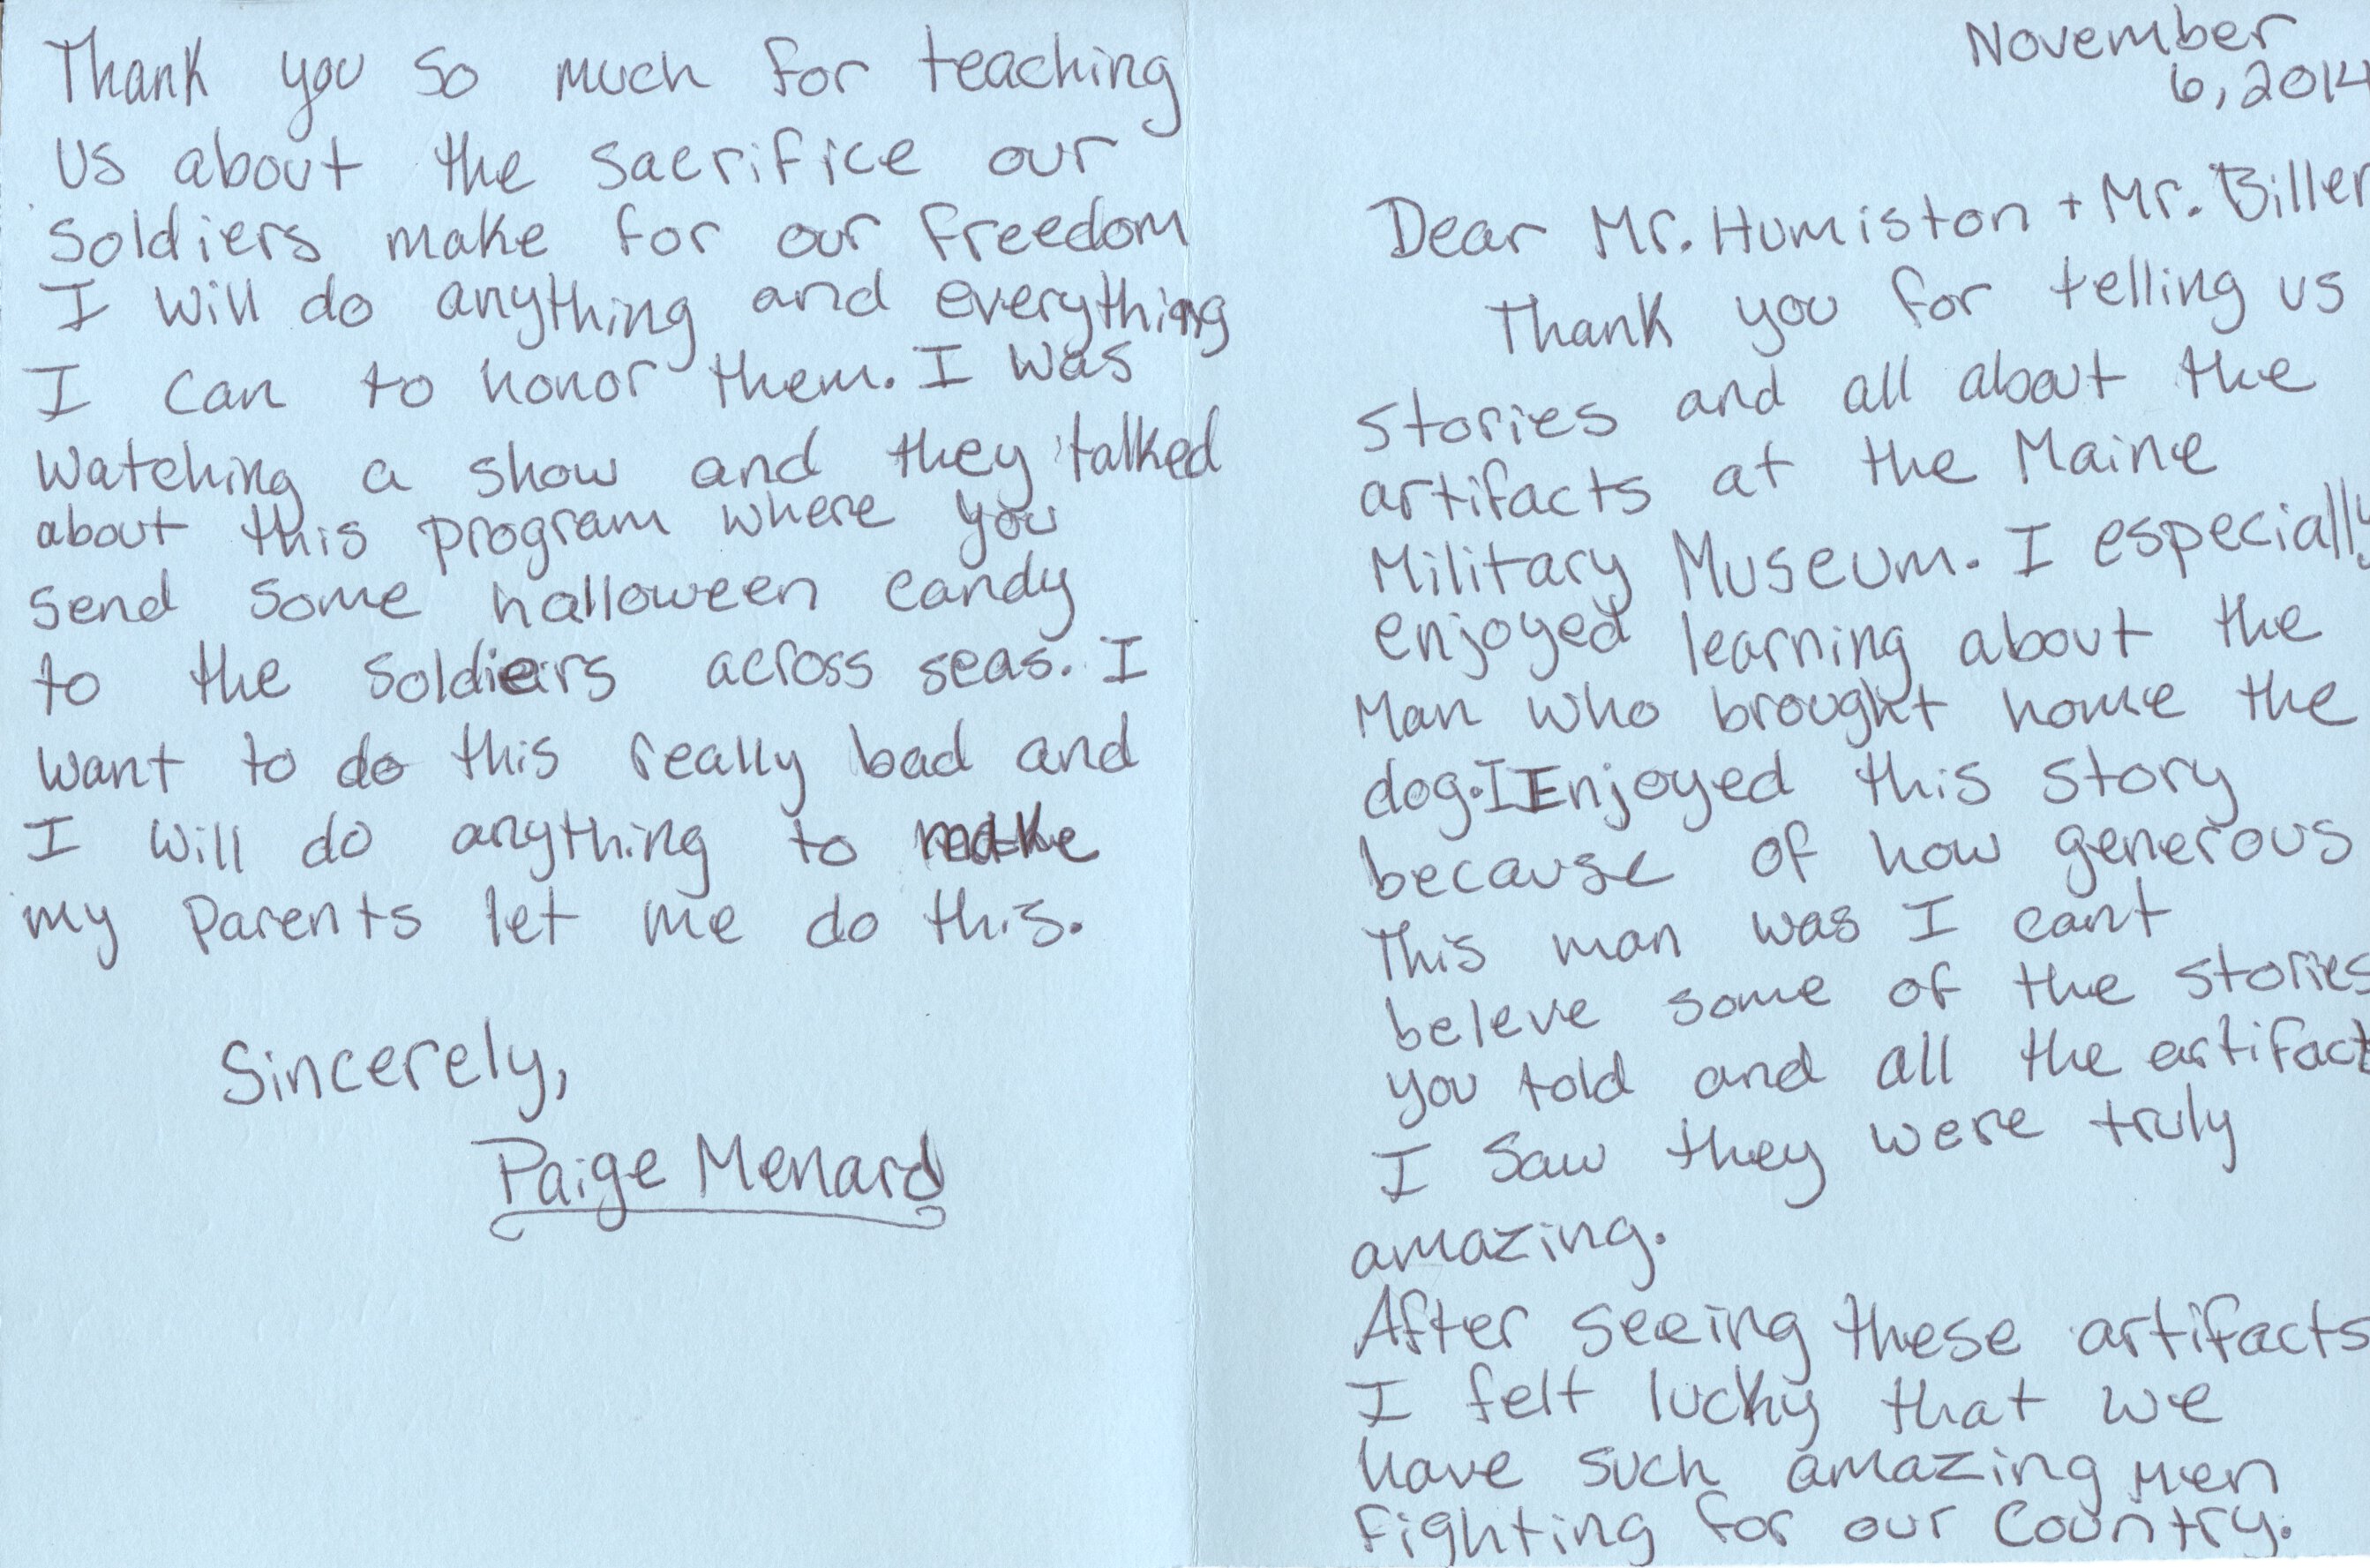 November
6, 2014
Dear Mr. Humiston + Mr. Biller
Thank you for telling us
stories and all about the
artifacts at the Maine
Military Museum. I especially
enjoyed learning about the
Man who brought home the
dog. I Enjoyed this story
because of how generous
This man was I cant
beleve some of the stories
you told and all the artifact
I saw they were truly
amazing.
After seeing these artifacts
I felt lucky that we
have such amazing men
fighting for our Country.
Thank you so much for teaching
us about the sacrifice our
soldiers make for our freedom
I will do anything and everything
I can to honor them. I was
watching a show and they talked
about this program where you
send some halloween candy
to the soldiers across seas. I
want to do this really bad and
I will do anything to make
my parents let me do this.
Sincerely,
Paige Menard